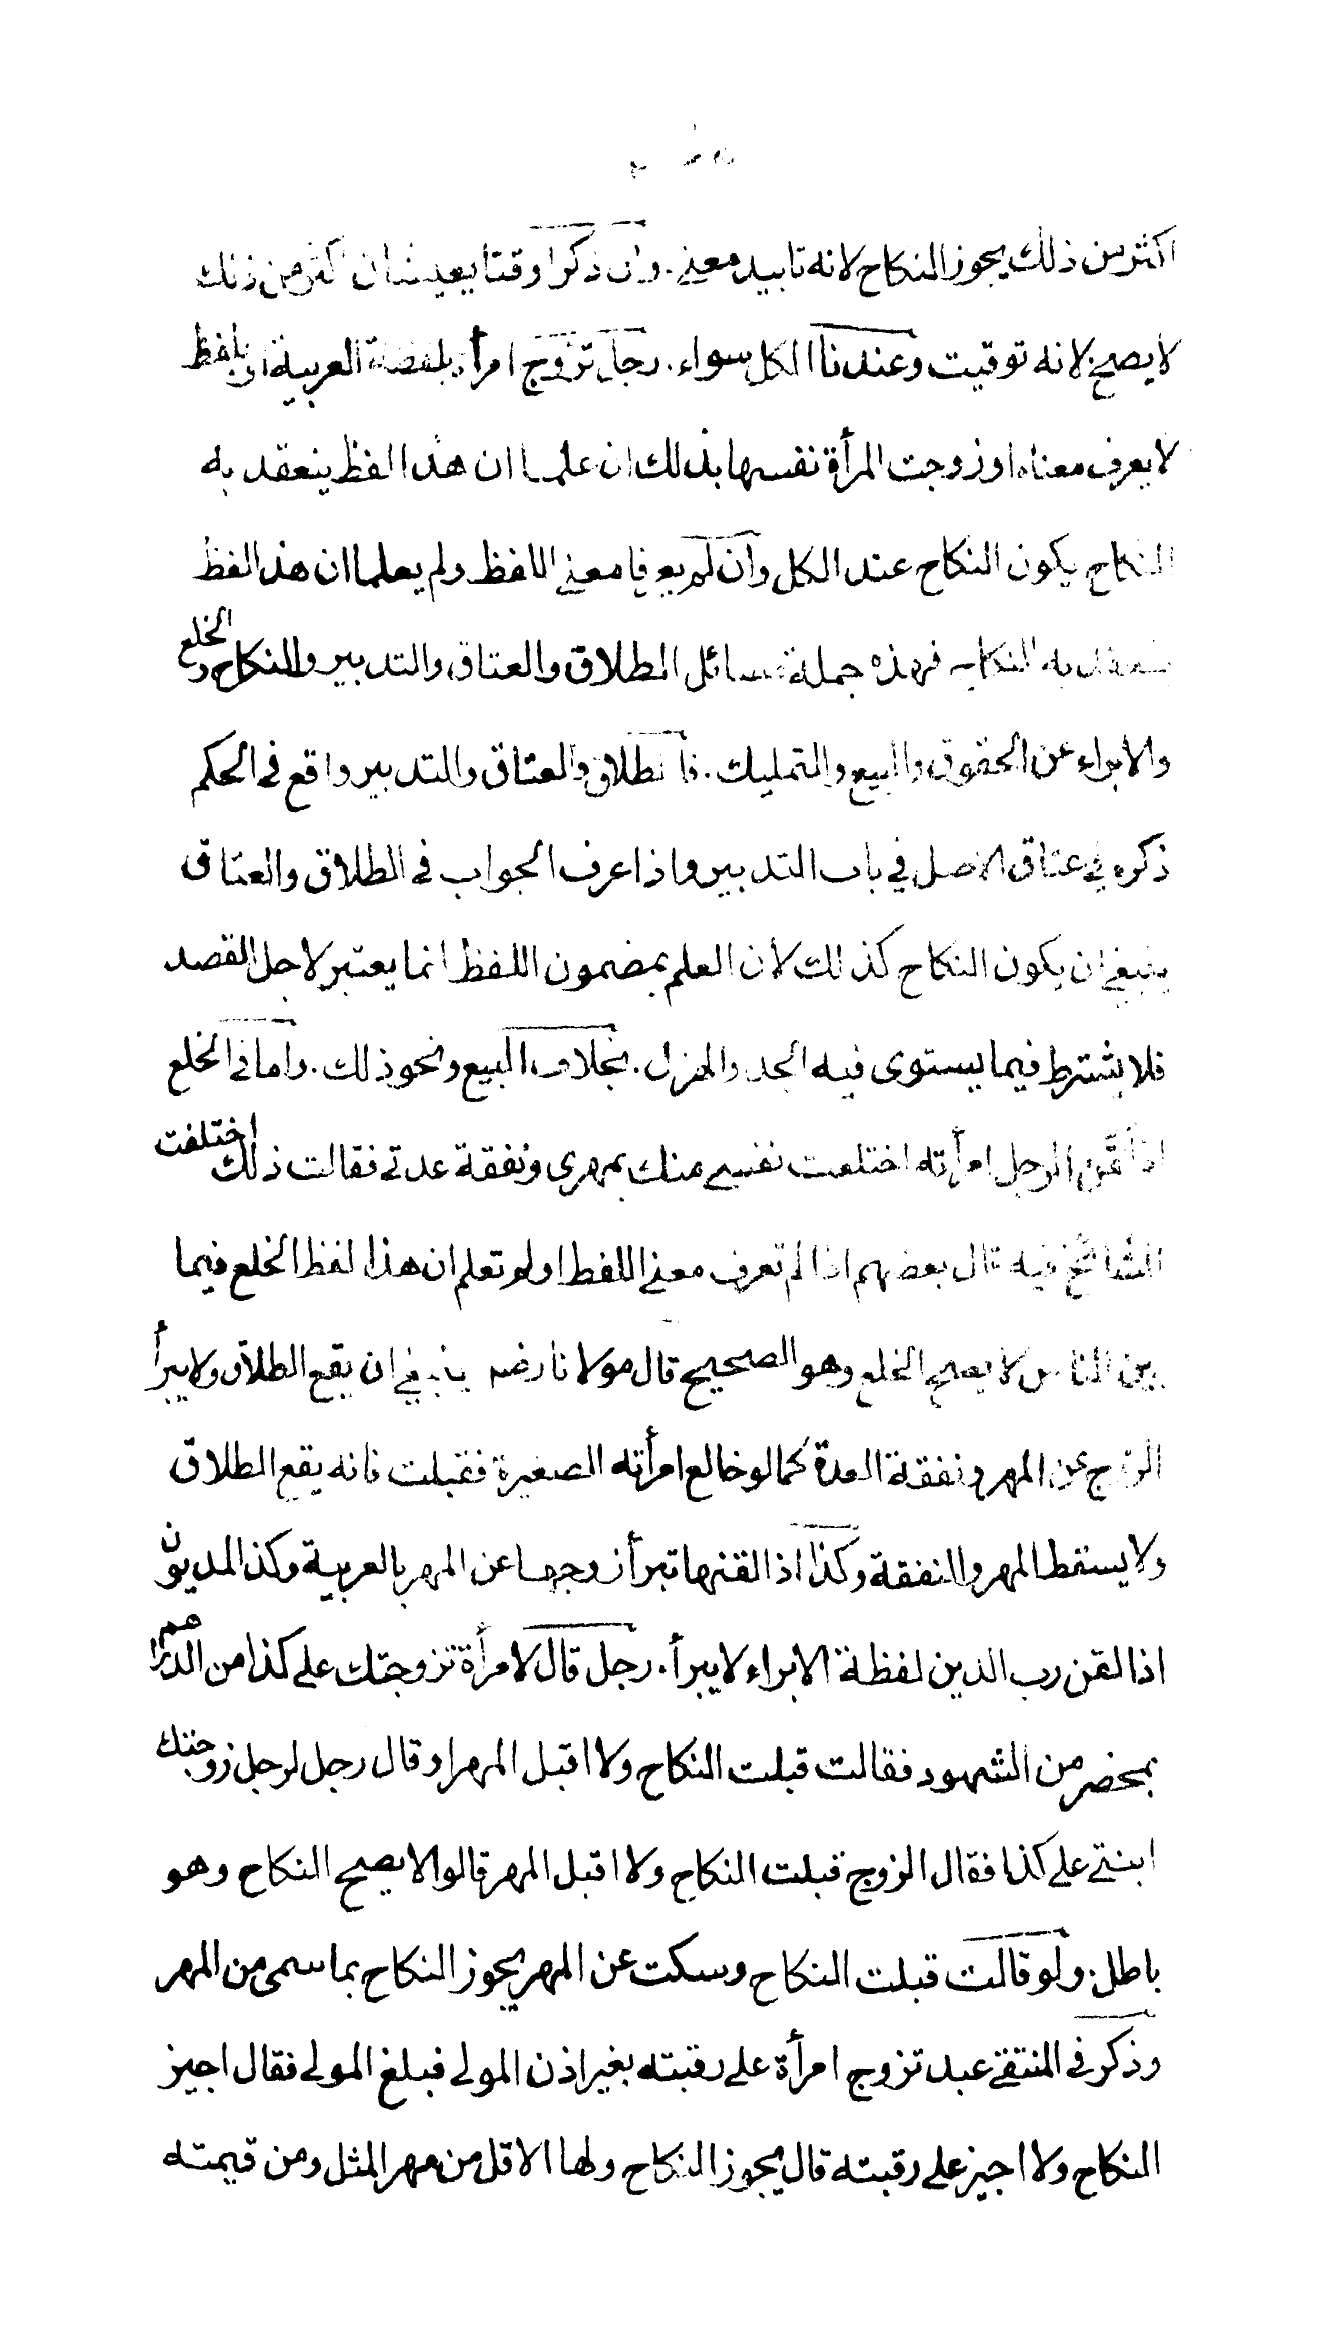 اكثر من ذلك يجوز النكاح لانه تابيد معنى. وان ذكرا وقتا يعيشان اكثر من ذلك
لا يصح لانه توقيت وعندنا الكل سواء. رجل تزوج امرأة بلفظة العربية او بلفظ
لا يعرف معناه او زوجت المرأة نفسها بذلك ان علما ان هذا الفظ ينعقد به
النكاح يكون النكاح عند الكل وان لم يعرفا معنى اللفظ ولم يعلما ان هذا الفظ
ينعقد به النكاح فهذه جملة مسائل الطلاق والعتاق والتدبير والنكاح والخلع
والابراء عن الحقوق والبيع والتمليك. فالطلاق والعتاق والتدبير واقع في الحكم
ذكره في عتاق الاصل في باب التدبير واذا عرف الجواب في الطلاق والعتاق
ينبغي ان يكون النكاح كذلك لان العلم بمضمون اللفظ انما يعتبر لاجل القصد
فلا يشترط فيما يستوى فيه الجد والهزل. بخلاف البيع ونحو ذلك. واما في الخلع
اذا لقن الرجل امرأته اختلعت نفسي منك بمهرى ونفقة عدتي فقالت ذلك اختلفت
المشائخ فيه قال بعضهم اذا لم تعرف معنى اللفظ او لو تعلم ان هذا لفظ الخلع فيما
بين الناس لا يصح الخلع وهو الصحيح قال مولانا رضه ينبغي ان يقع الطلاق ولا يبرأ
الزوج عن المهر ونفقة العدة كما لو خالع امرأته الصغيرة فقبلت فانه يقع الطلاق
ولا يسقط المهر والنفقة وكذا اذا لقنها تبرأ زوجها عن المهر بالعربية وكذا المديون
اذا لقن رب الدين لفظة الابراء لا يبرأ. رجل قال لامرأة تزوجتك على كذا من الدراهم
بمحضر من الشهود فقالت قبلت النكاح ولا اقبل المهر او قال رجل لرجل زوجتك
ابنتى على كذا فقال الزوج قبلت النكاح ولا اقبل المهر قالوا لا يصح النكاح وهو
باطل. ولو قالت قبلت النكاح وسكت عن المهر يجوز النكاح بما سمى من المهر
وذكر في المنتقى عبد تزوج امرأة على رقبته بغير اذن المولى فبلغ المولى فقال اجيز
النكاح ولا اجيز على رقبته قال يجوز النكاح ولها الاقل من مهر المثل ومن قيمته